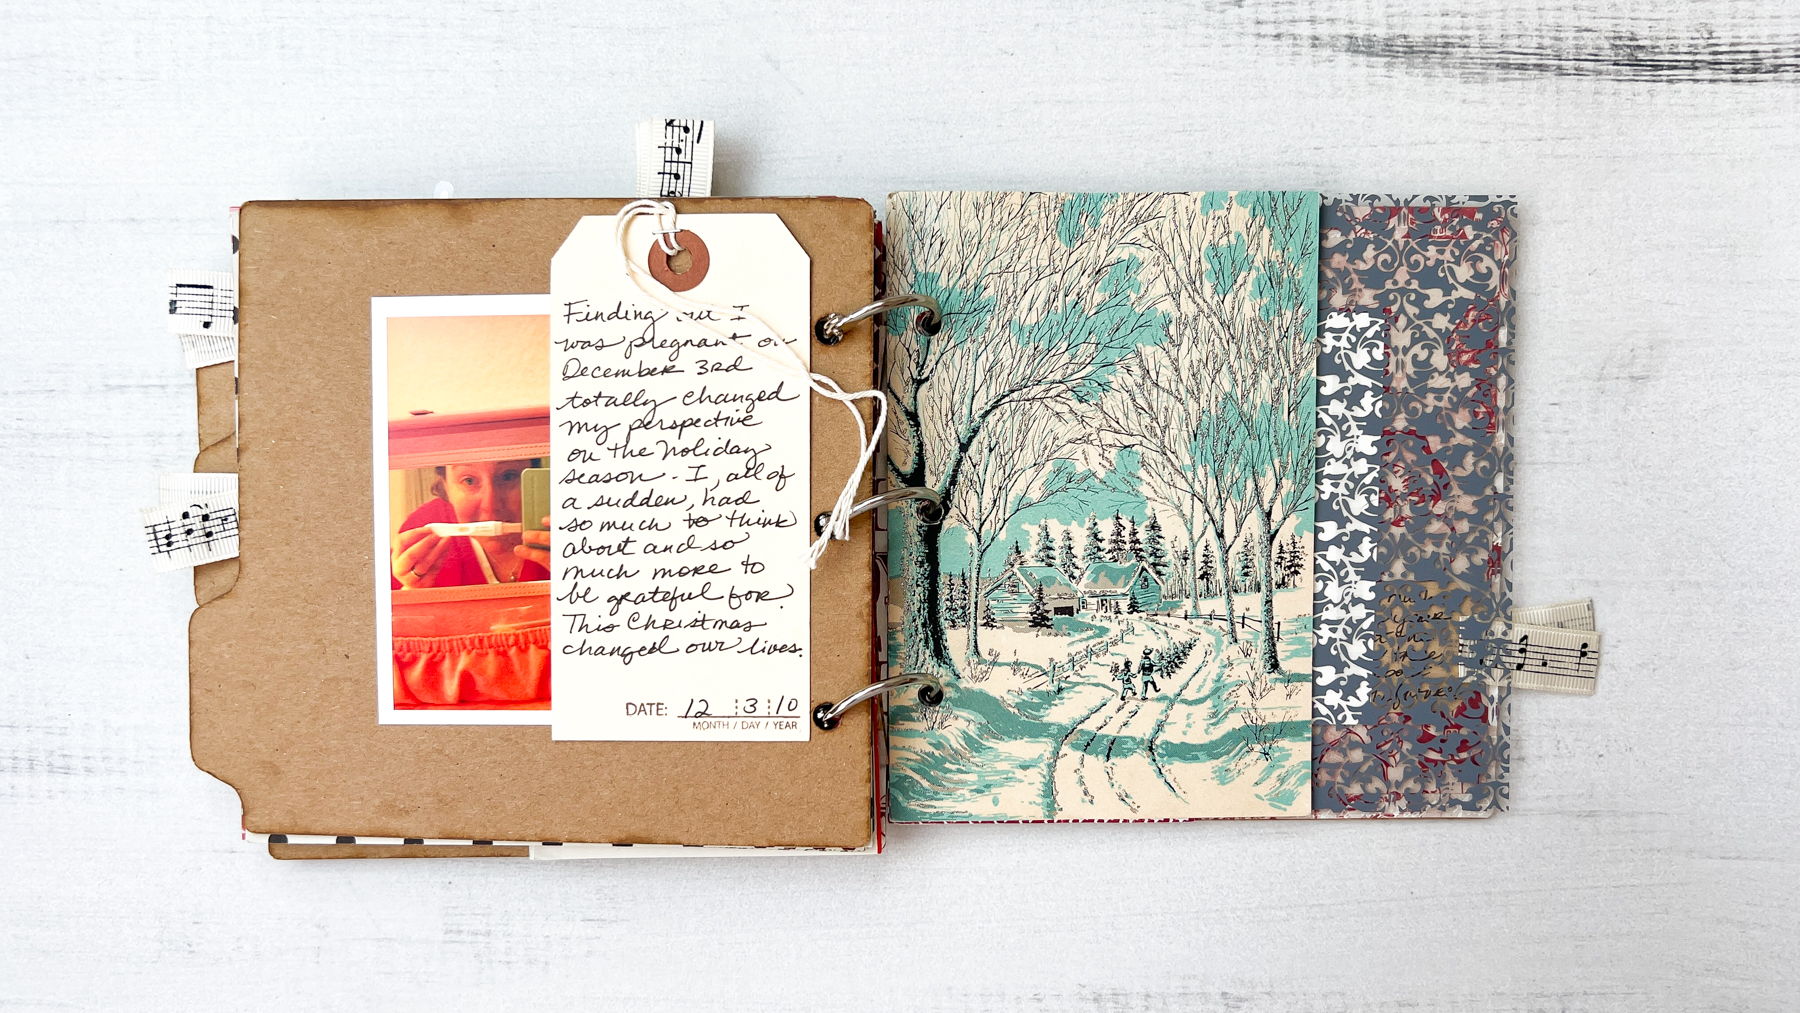 Finding out I
was pregnant on
December 3rd
totally changed
my perspective
on the holiday
season. I, all of
a sudden, had
so much to think
about and so
much more to
be grateful for.
This Christmas
changed our lives.
DATE: 12 3 10
MONTH / DAY / YEAR